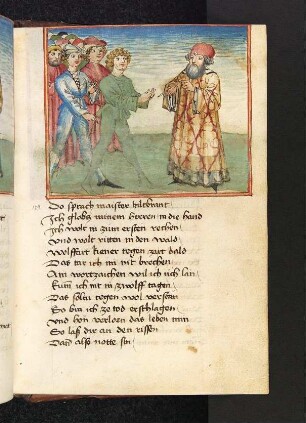 Do sprach maister hiltbrant
Ich globs minem herren in die hand
Ich wolt in zum ersten rechen
Vnd wolt ritten in den wald
Wolffart kiener degen gut bald
Das tar ich im nit brechen
Ain wortzaichen wil ich uch lan
Kum ich nit in zwolff tagen
Das sölu degen wol verstan
So bin ich ze tod erschlagen
Vnd hon verloren das leben min
So laß dir an den rissen
Dain also notte sin